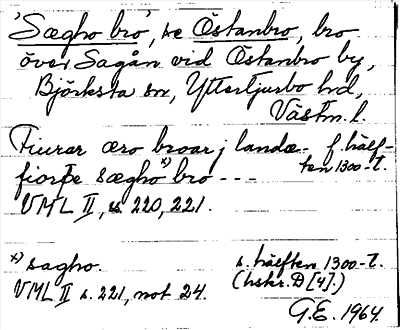 'Sægho bro', se Östanbro, bro
över Sagån vid Östanbro by,
Björksta sn, Yttertjurbo hd,
Västm. l.
Fiurar æro broar j landæ- f. hälf-
fiorþe sæghoˣ⁾ bro --- ten 1300-t.
VML II, s 220, 221.
x) sagho. s. hälften 1300-t.
VML II s. 221, not 24. (hskr. D [4].)
G.E. 1964